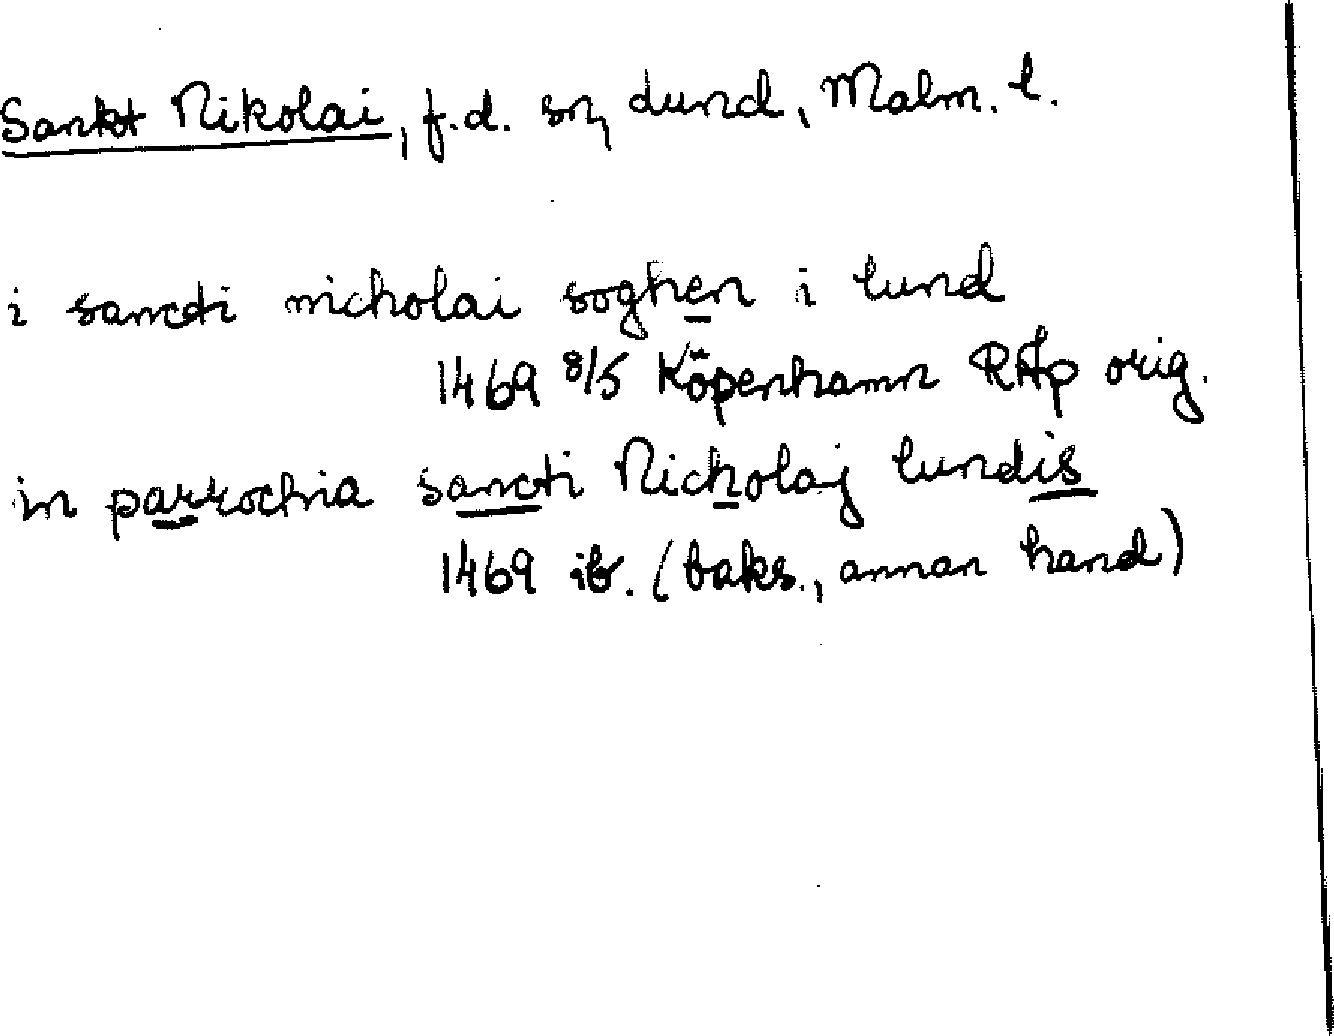 Sankt Nikolai, f.d. sn, Lund, Malm. l.
i sancti nicholai soghen i lund
1469 8/5 Köpenhamn RAp orig.
in parrochia sancti Nicholaj lundis
1469 ib. (baks., annan hand)